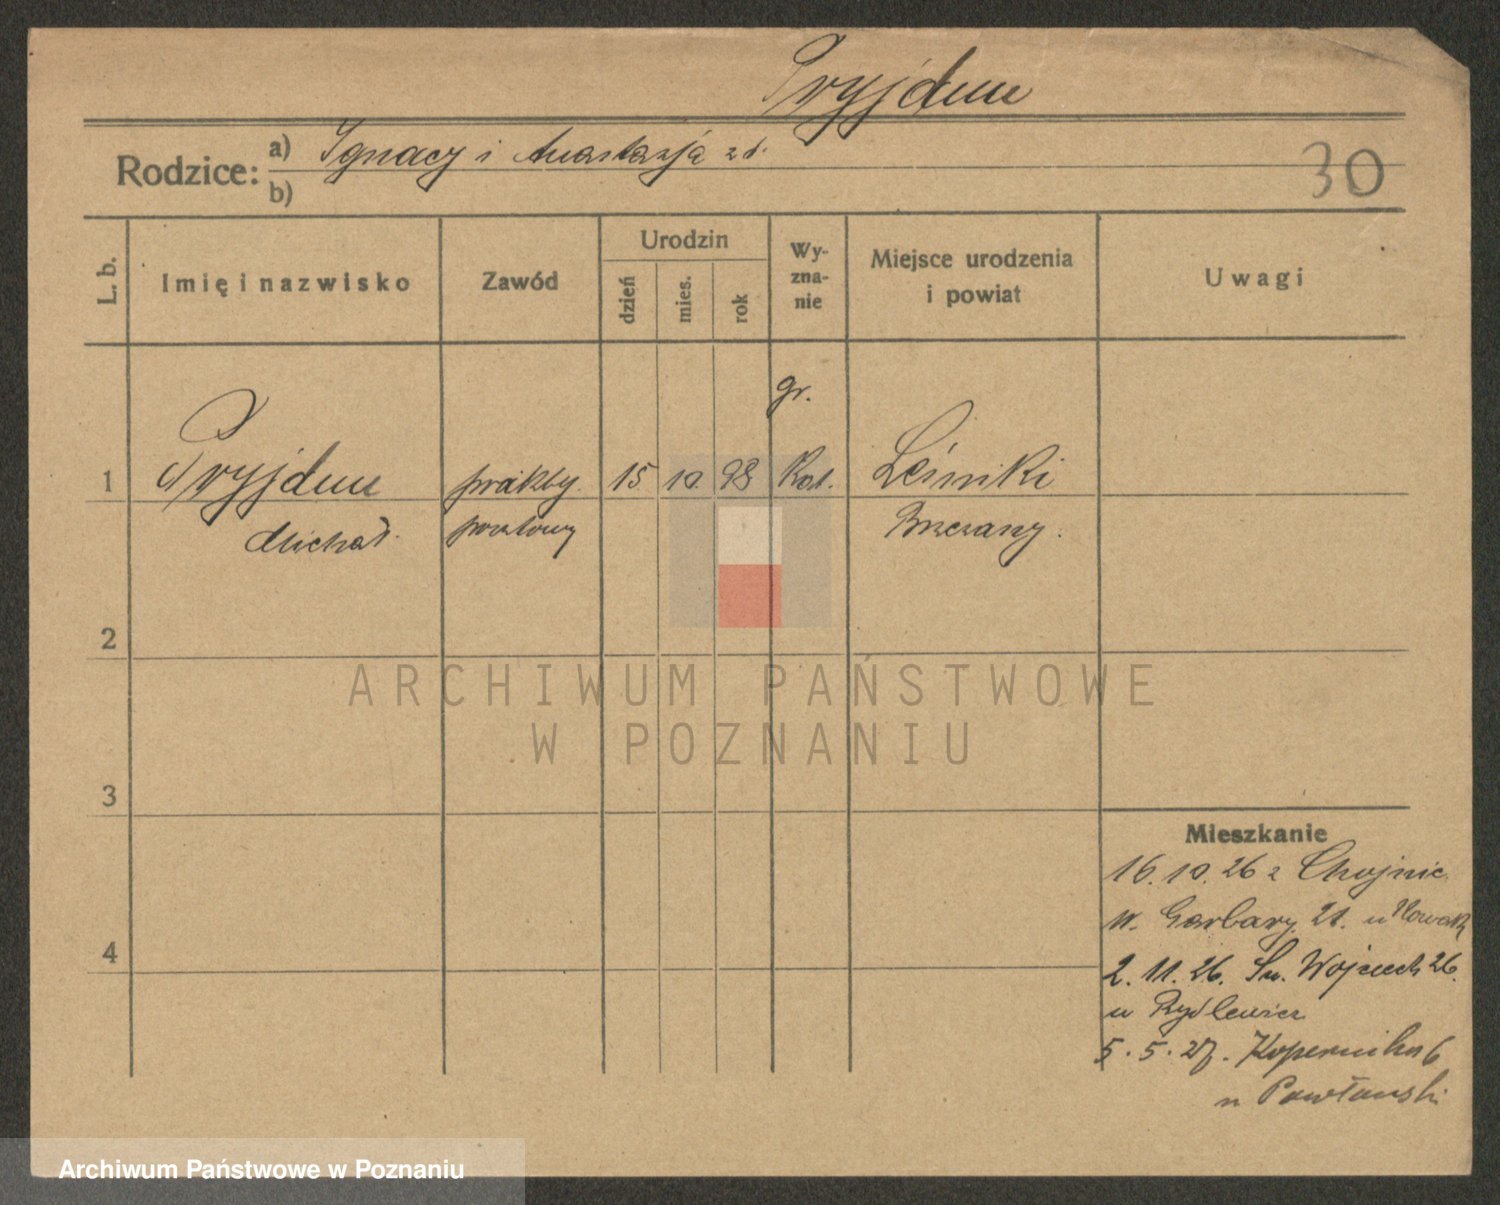 Pryjdun
Rodzice: a) Ignacy i Anastazja zd.
b)
30
L. b.
Imię i nazwisko
Zawód
Urodzin
dzień
mies.
rok
Wy-
zna-
nie
Miejsce urodzenia
i powiat
Uwagi
gr.
1 Pryjdun prakty. 15 10. 98 Kat. Leśniki
Michał. pocztowy Brzeżany.
2
ARCHIWUM PAŃSTWOWE
W POZNANIU
3
Mieszkanie
16.10.26 z Chojnic
W. Garbary 21. u Nowak
4
2.11.26. Św. Wojciech 26.
u Rydlewicz
5.5.27. Kopernika 6
u Pawłowski
Archiwum Państwowe w Poznaniu